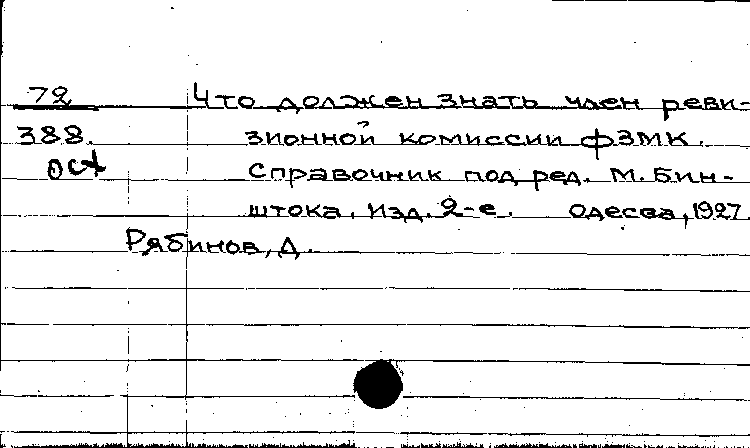 72 Что должен знать член реви-
388. зионной комиссии фЗМК.
ост Справочник под ред. М. Бин-
штока, Изд. 2-е. Одесса, 1927.
Рябинов, Д.